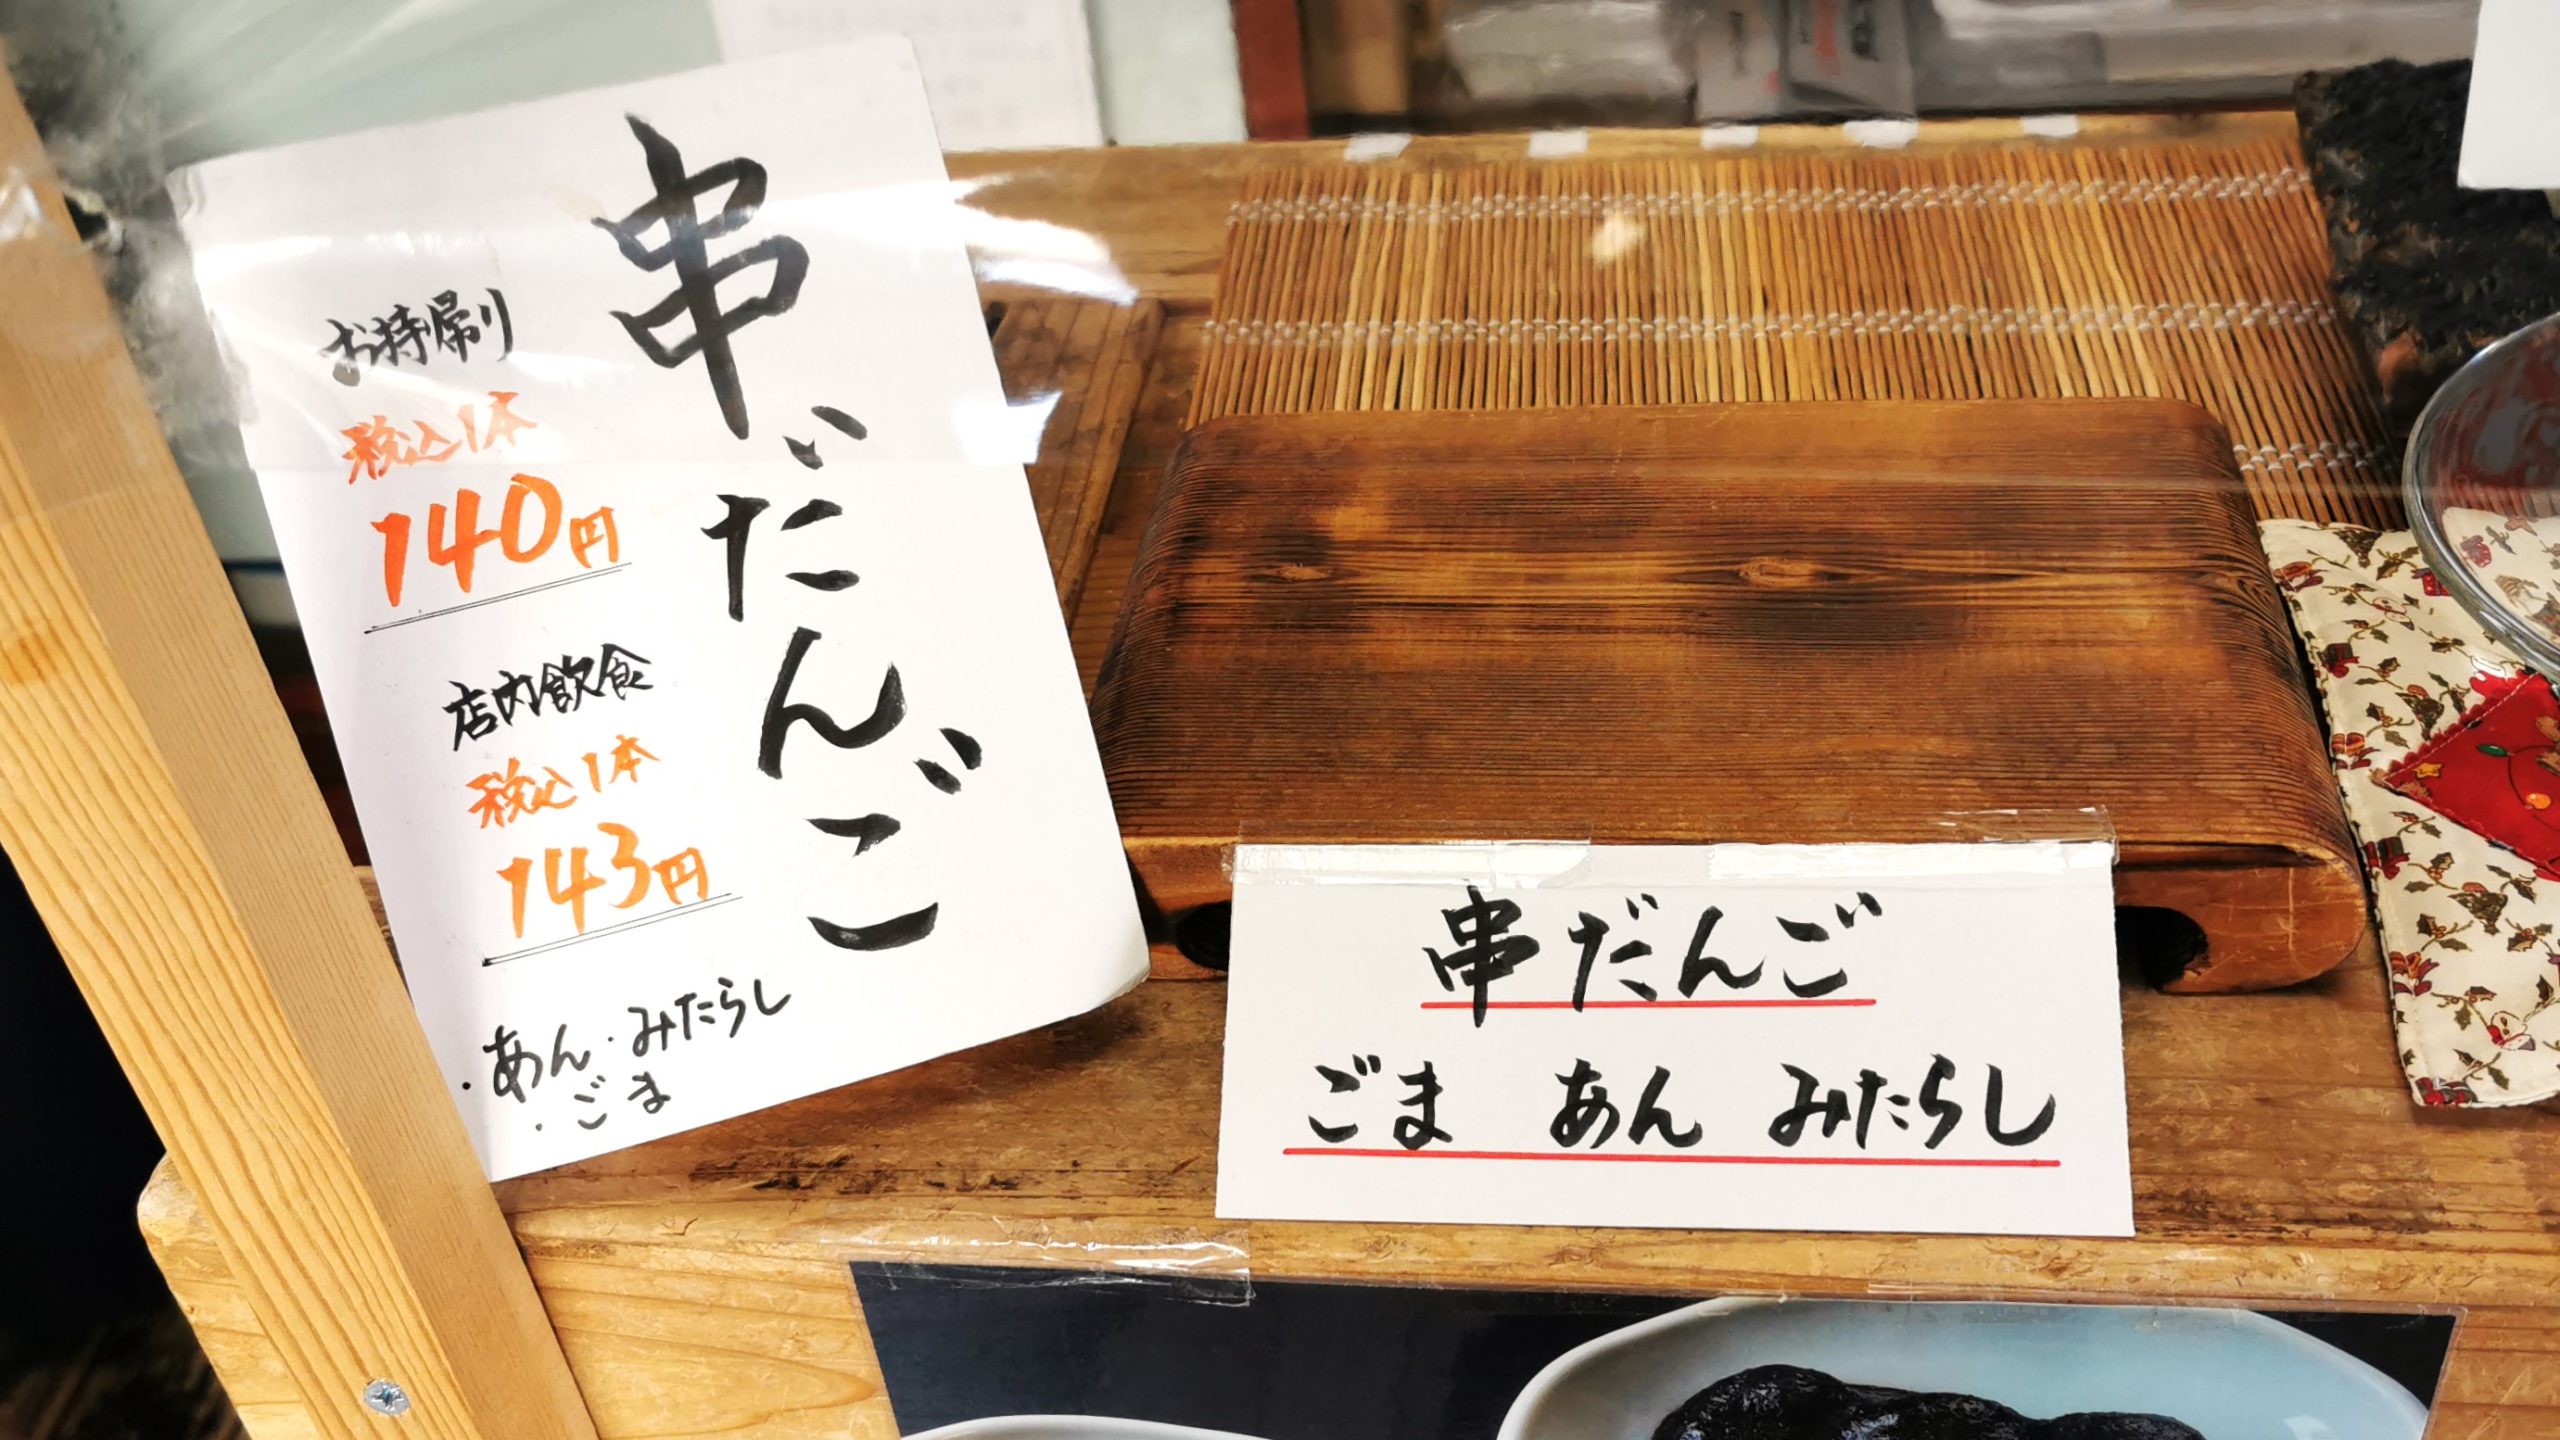 串だんご
お持帰り
税込1本
140円
店内飲食
税込1本
143円
・あん・みたらし
・ごま
串だんご
ごま あん みたらし